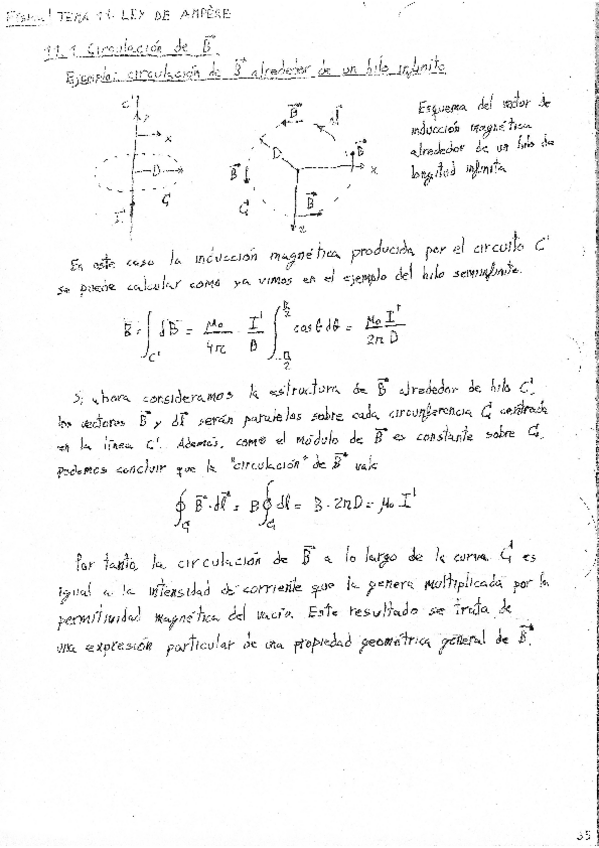 TEMA 11. LEY DE AMPÈRE
11.1 Circulación de B⃗.
Ejemplo: circulación de B⃗ alrededor de un hilo infinito
C'
y
x
D
C₁
I'
B⃗
dl⃗
D
B⃗
x
B⃗
C₁
B⃗
z
Esquema del vector de
inducción magnética
alrededor de un hilo de
longitud infinita
En este caso la inducción magnética producida por el circuito C'
se puede calcular como ya vimos en el ejemplo del hilo semiinfinito.
B = ∫_C' dB = μ₀/4π I'/D ∫_{-π/2}^{π/2} cosθ dθ = μ₀/2π I'/D
Si ahora consideramos la estructura de B⃗ alrededor de hilo C',
los vectores B⃗ y dl⃗ serán paralelos sobre cada circunferencia C₁ centrada
en la línea C'. Además, como el módulo de B⃗ es constante sobre C₁,
podemos concluir que la "circulación" de B⃗ vale
∮_C₁ B⃗·dl⃗ = B ∮_C₁ dl = B·2πD = μ₀ I'
Por tanto, la circulación de B⃗ a lo largo de la curva C₁ es
igual a la intensidad de corriente que la genera multiplicada por la
permitividad magnética del vacío. Este resultado se trata de
una expresión particular de una propiedad geométrica general de B⃗.
35